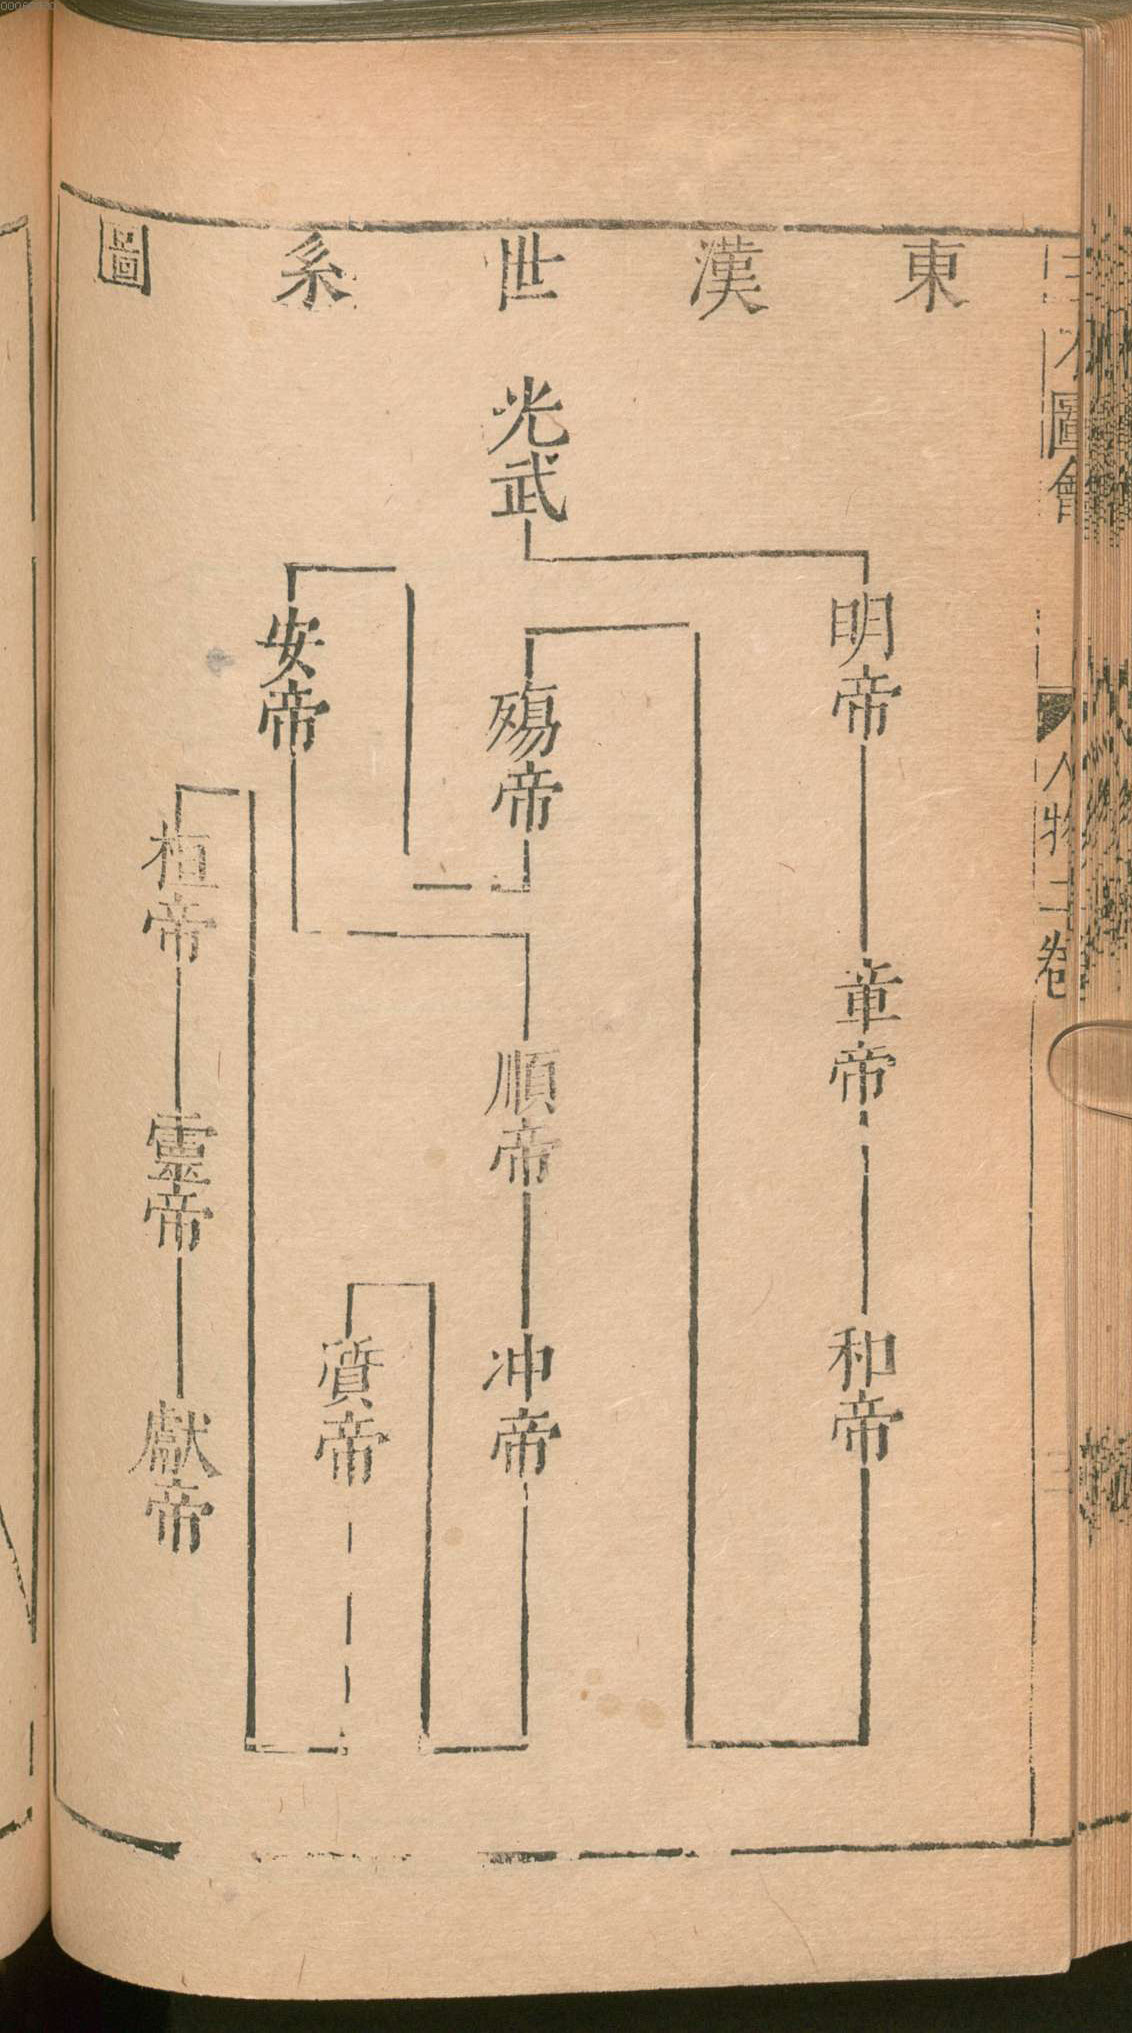 東漢世系圖
光武
明帝
章帝
和帝
殤帝
安帝
順帝
冲帝
質帝
桓帝
靈帝
獻帝
才圖會
人物二卷